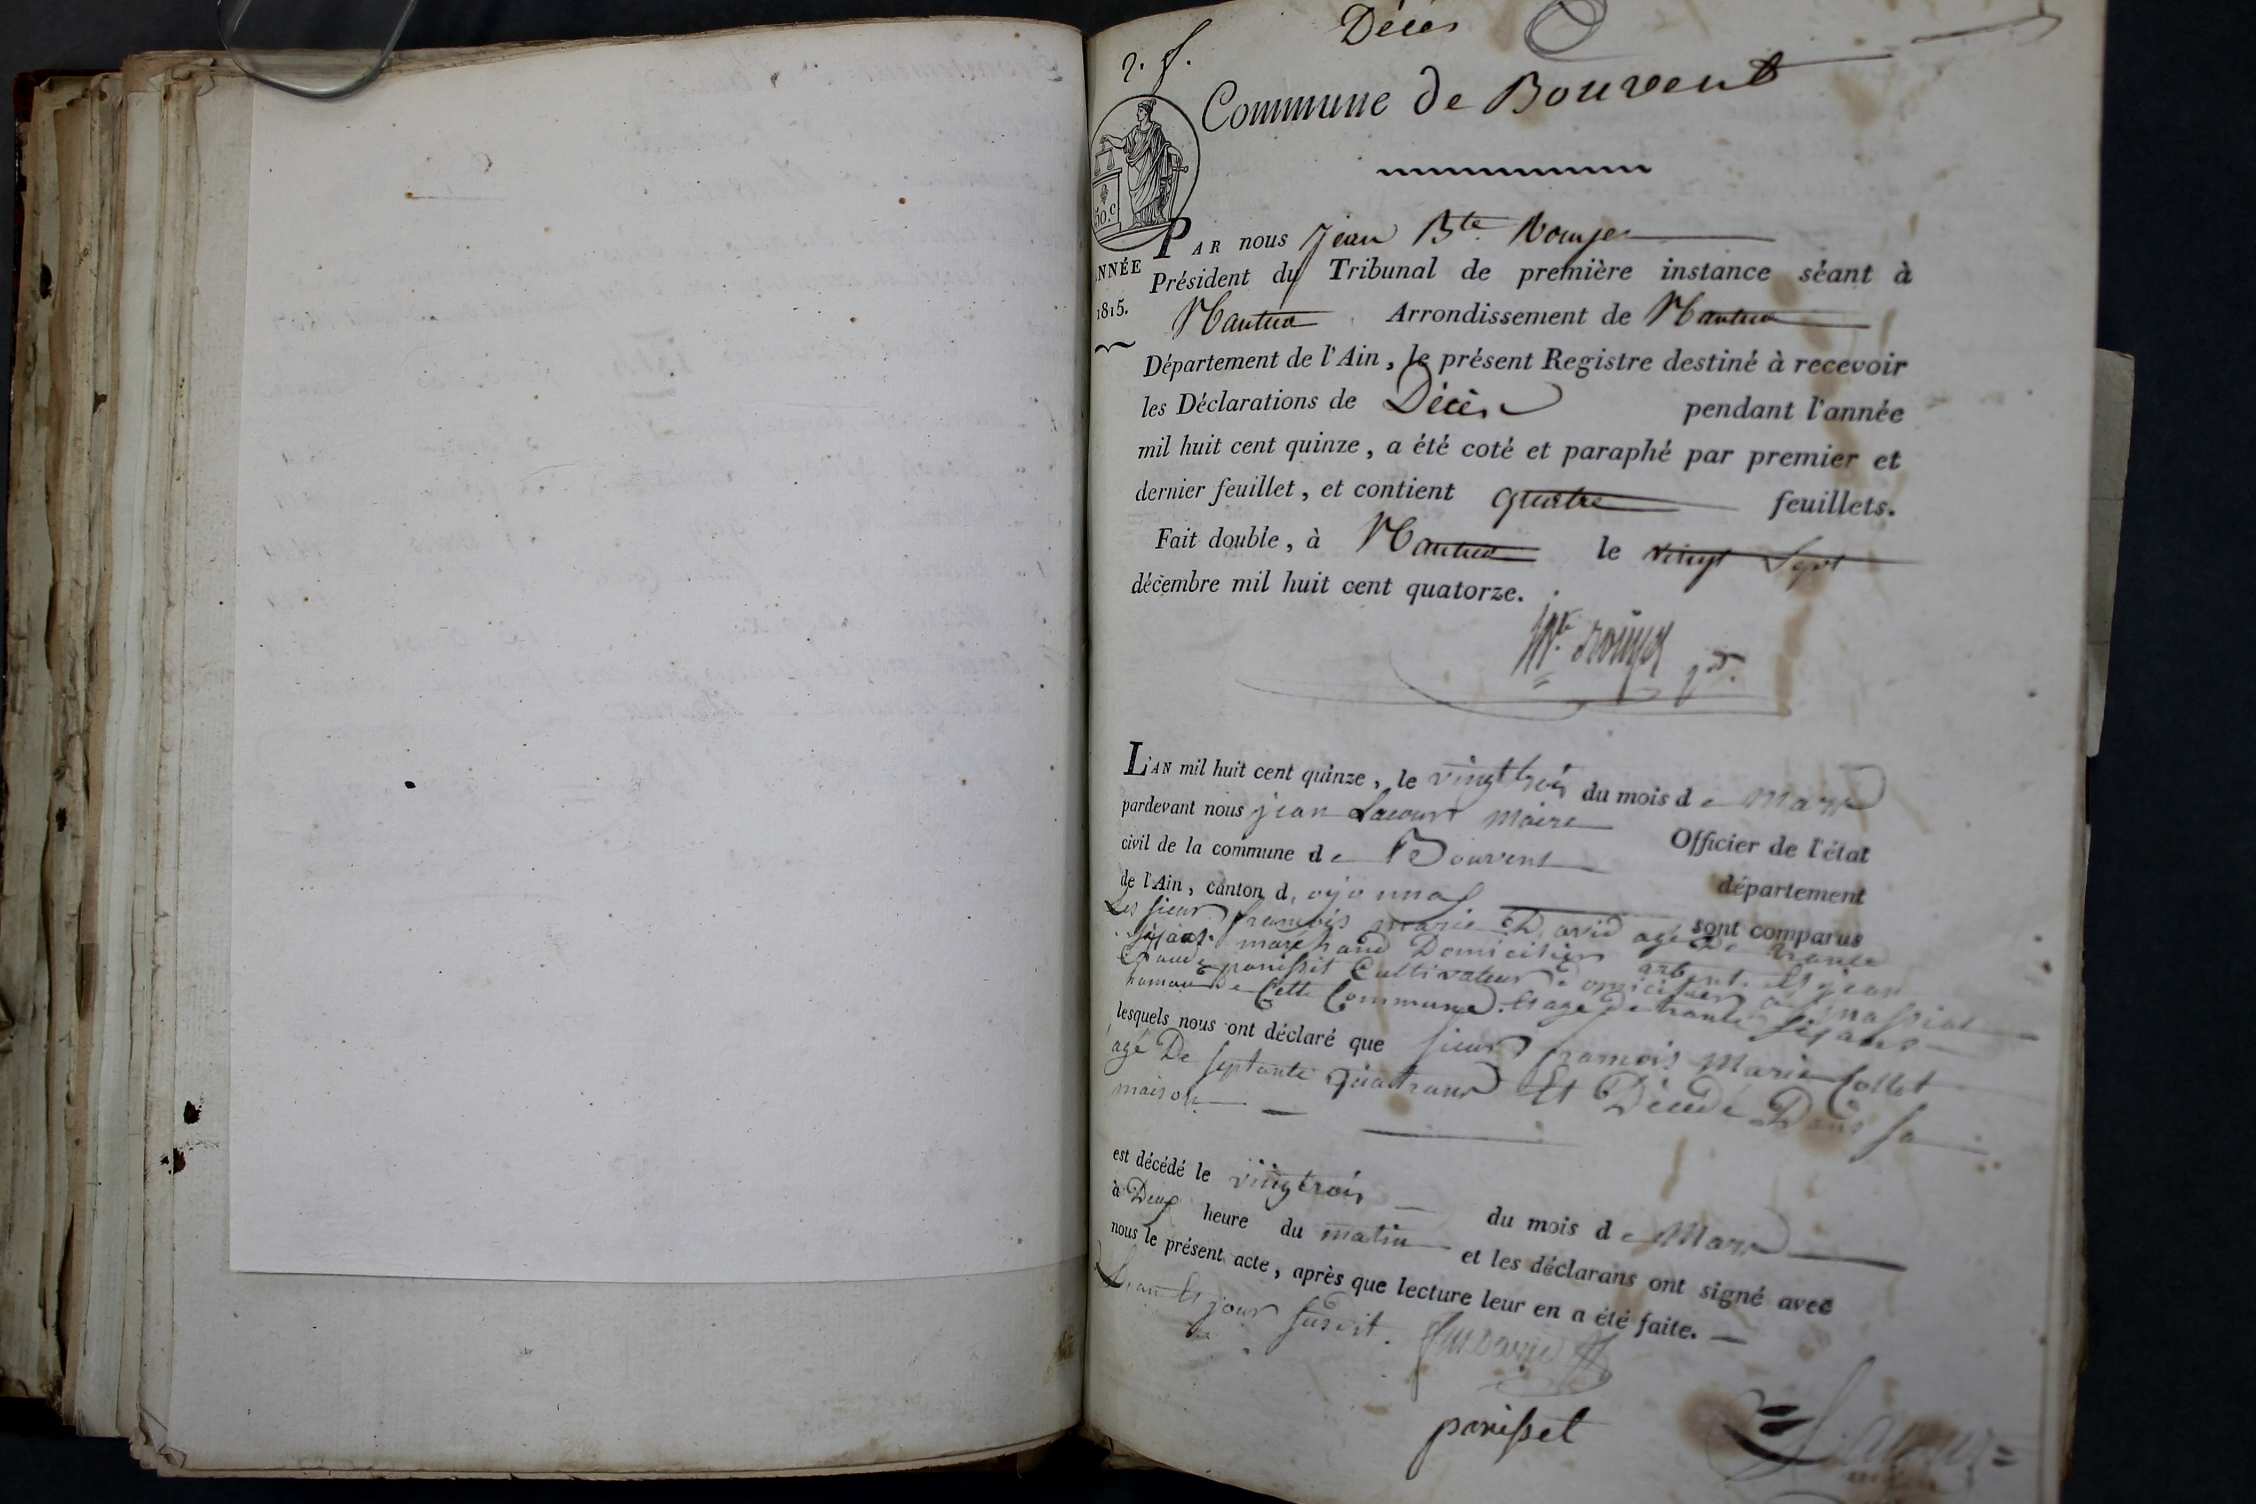 Décès
2. f.
Commune de Bouvent
50.c
ANNÉE
1815.
PAR nous Jean Bte Rouyer
Président du Tribunal de première instance séant à
Nantua Arrondissement de Nantua
Département de l'Ain, le présent Registre destiné à recevoir
les Déclarations de Décès pendant l'année
mil huit cent quinze, a été coté et paraphé par premier et
dernier feuillet, et contient quatre feuillets.
Fait double, à Nantua le vingt Sept
décembre mil huit cent quatorze.
L'AN mil huit cent quinze, le vingtrois du mois de mars
pardevant nous jean Lacour maire Officier de l'état
civil de la commune de Bouvent département
de l'Ain, canton d, oyonnas sont comparus
Les sieur francois marie David agé De trante
marchand Domicilier arbent Et jean
panisset Cultivateur Domicilier a massiat
hamau De Cette Commune. Et agé De trante sijans
lesquels nous ont déclaré que sieur francois Marie Collet
agé De septante quatrans Et Décedé Dans sa
maison
est décédé le vingtrois du mois de Mars
à Deux heure du matin et les déclarans ont signé avec
nous le présent acte, après que lecture leur en a été faite.
L'an Et jour susdit.
panisset
Lacour